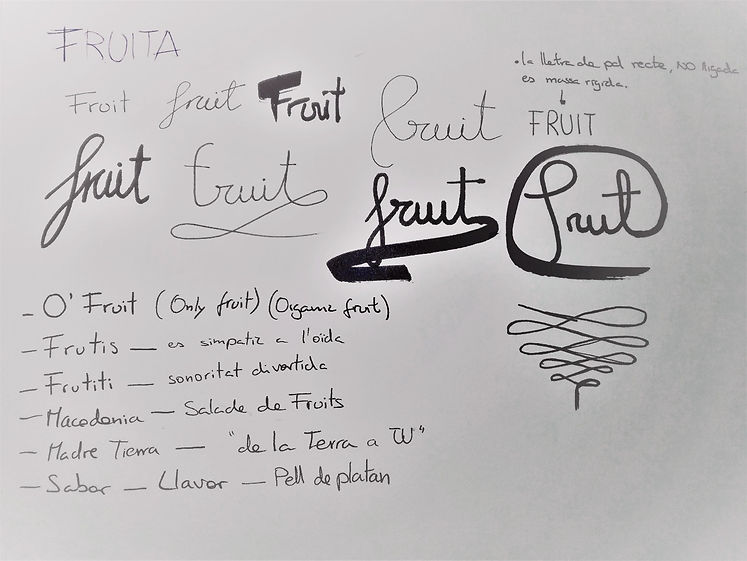 FRUITA
Fruit fruit Fruit fruit
• la lletra de pal recte, NO lligada
es massa rigida.
FRUIT
fruit fruit fruit fruit
- O' Fruit (Only fruit) (Oigamz fruit)
- Frutis — es simpatiz a l'oïda
- Frutiti — sonoritat divertida
- Macedonia — Salade de Fruits
- Madre Tierra — "de la Terra a TU"
- Sabor — Llavor — Pell de platan